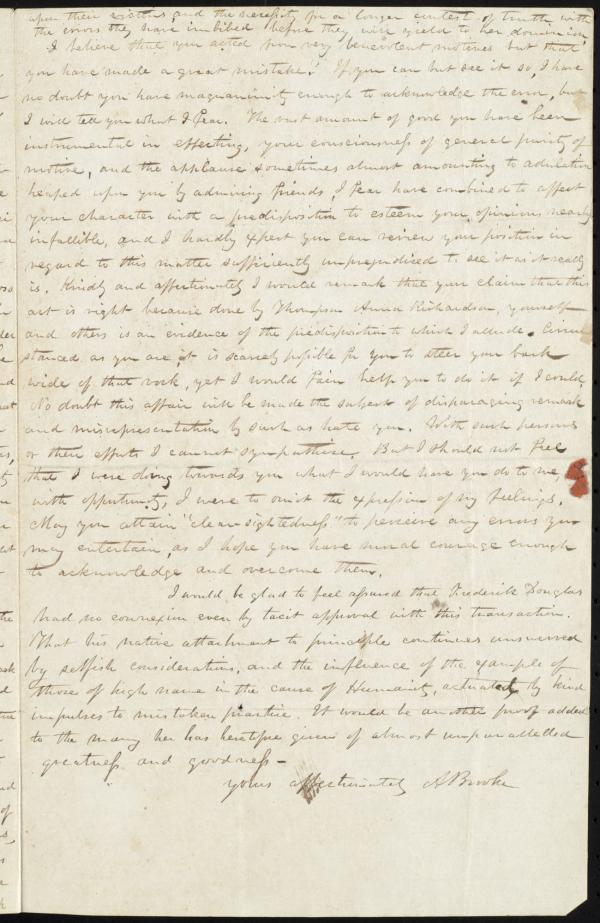 upon their victims, and the necessity for a longer contest of truth with
the errors they have imbibed before they will yield to her dominion.
I believe that you acted from very benevolent motives but that
you have made a great mistake. If you can but see it so, I have
no doubt you have magnanimity enough to acknowledge the error, but
I will tell you what I fear. The vast amount of good you have been
instrumental in effecting, your consciousness of general purity of
motive, and the applause sometimes almost amounting to adulation
heaped upon you by admiring friends, I fear have combined to affect
your character with a predisposition to esteem your opinions nearly
infallible, and I hardly expect you can review your position in
regard to this matter sufficiently unprejudiced to see it as it really
is. Kindly and affectionately I would remark that your claim that this
act is right because done by Thompson Anna Richardson, yourself
and others is an evidence of the predisposition to which I allude. Circum
stanced as you are, it is scarcely possible for you to steer your bark
wide of that rock, yet I would fain help you to do it if I could.
No doubt this affair will be made the subject of disparaging remark
and misrepresentation by such as hate you. With such persons
or their efforts I cannot sympathise. But I should not feel
that I were doing towards you what I would have you do to me,
with opportunity, I were to omit the expression of my feelings.
May you attain "clear sightedness" to perceive any errors you
may entertain, as I hope you have moral courage enough
to acknowledge and overcome them.
I would be glad to feel assured that Frederick Douglas
had no connexion even by tacit approval with this transaction.
That his native attachment to principle continues unswerved
by selfish considerations, and the influence of the example of
those of high name in the cause of Humanity, actuated by kind
impulses to mistaken practice. It would be another proof added
to the many he has heretofore given of almost unparallelled
greatness and goodness -
yours affectionately A Brooke